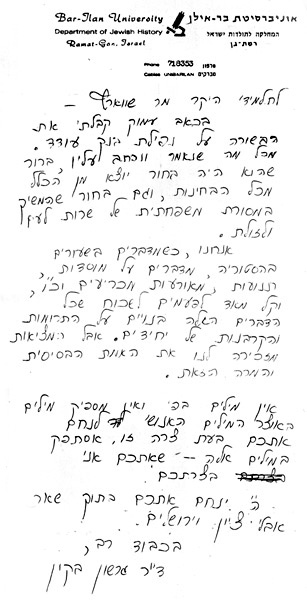 Bar-Ilan University אוניברסיטת בר-אילן
Department of Jewish History המחלקה לתולדות ישראל
Ramat-Gan, Israel רמת-גן
Phone 718353 טלפון
Cables UNIBARILAN מברקים
לתלמידי היקר מר שווארץ –
בכאב עמוק קבלתי את
הבשורה על נפילת בנך עודד.
מכל מה שנאמר ונכתב עליו, ברור
שהוא היה בחור יוצא מן הכלל
מכל הבחינות, וגם בחור שהמשיך
במסורת משפחתית של שרות לעם
ולזולת.
אנחנו, כשמדברים בשעורים
בהסטוריה, מדברים על מוסדות,
תנועות, מאורעות מכריעים וכו',
וקל מאוד לפעמים לשכוח שכל
הדברים האלה בנויים על התרומות
והקרבנות של יחידים. אבל המציאות
מזכירה לנו את האמת הבסיסית
והמרה הזאת.
אין מילים בפי ואין מספיק מילים
באוצר המילים האנושי לנחם
אתכם בעת צרה זו. אסתפק
במילים אלה -- שאתכם אני
בצרתכם.
ה' ינחם אתכם בתוך שאר
אבלי ציון וירושלים.
בכבוד רב,
ד"ר גרשון בקון